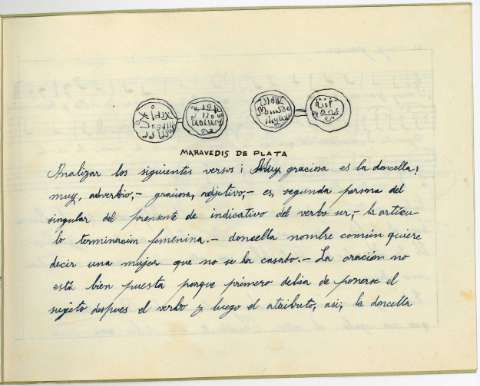 MARAVEDIS DE PLATA
Analizar los siguientes versos: ¡Muy graciosa es la doncella!
muy, adverbio;- graciosa, adjetivo;- es, segunda persona del
singular del presente de indicativo del verbo ser,- la articu-
lo terminacion femenina.- donsella nombre común quiere
decir una mujer que no se ha casado.- La oración no
está bien puesta porque primero debia de ponerse el
sujeto despues el verbo y luego el atributo, asi; la doncella